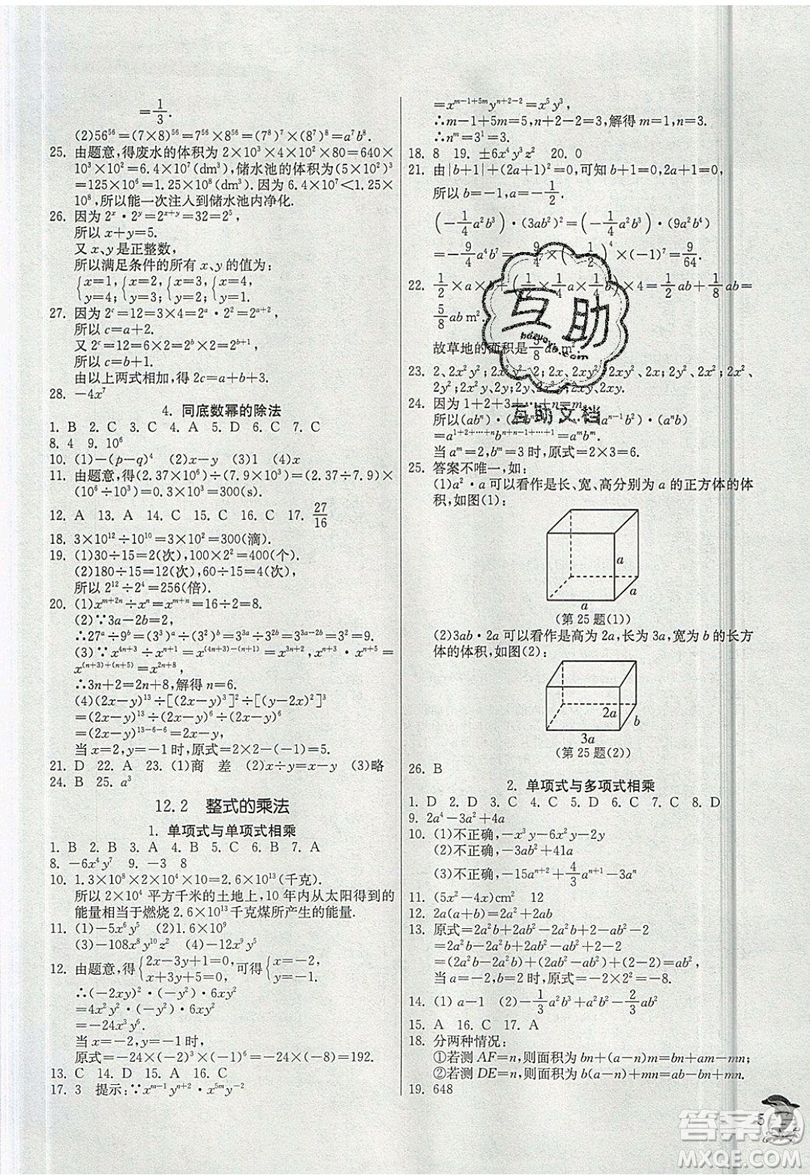 =1/3.
(2)56⁵⁶=(7×8)⁵⁶=7⁵⁶×8⁵⁶=(7⁸)⁷×(8⁷)⁸=a⁷b⁸.
25. 由题意,得废水的体积为2×10³×4×10²×80=640×
10³×10²=6.4×10⁷(dm³),储水池的体积为(5×10²)³
=125×10⁶=1.25×10⁸(dm³).因为6.4×10⁷<1.25×
10⁸,所以能一次注入到储水池内净化.
26. 因为2ˣ·2ʸ=2ˣ⁺ʸ=32=2⁵,
所以x+y=5.
又x、y是正整数,
所以满足条件的所有x、y的值为:
{x=1, {x=2, {x=3, {x=4,
{y=4; {y=3; {y=2; {y=1.
27. 因为2ᶜ=12=3×4=3×2²=2ᵃ·2²=2ᵃ⁺²,
所以c=a+2.
又因为2ᶜ=12=6×2=2ᵇ×2=2ᵇ⁺¹,
所以c=b+1.
由以上两式相加,得2c=a+b+3.
28. -4x⁷
4. 同底数幂的除法
1. B 2. C 3. D 4. A 5. C 6. C 7. C
8. 4 9. 10⁶
10. (1)-(p-q)⁴ (2)c² (3)1 (4)x
11. 由题意,得(2.37×10⁶)÷(7.9×10³)=(2.37÷7.9)×
(10⁶÷10³)=0.3×10³=300(s).
12. A 13. A 14. C 15. C 16. C 17. 27/16
18. 3×10¹²÷10¹⁰=3×10²=300(滴).
19. (1)30÷15=2(次),100×2²=400(个).
(2)180÷15=12(次),60÷15=4(次),
所以2¹²÷2⁴=256(倍).
20. (1)xᵐ⁺²ⁿ÷xⁿ=xᵐ⁺ⁿ=16÷2=8.
(2)∵3a-2b-2=0,∴3a-2b=2,
∴27ᵃ÷9ᵇ=(3³)ᵃ÷(3²)ᵇ=3³ᵃ÷3²ᵇ=3³ᵃ⁻²ᵇ=3²=9.
(3)∵x⁴ⁿ⁺³÷xⁿ⁺¹=x⁽⁴ⁿ⁺³⁾⁻⁽ⁿ⁺¹⁾=x³ⁿ⁺²,xⁿ⁺³·xⁿ⁺⁵=
x⁽ⁿ⁺³⁾⁺⁽ⁿ⁺⁵⁾=x²ⁿ⁺⁸,
∴3n+2=2n+8,∴n=6.
(4)(2x-y)¹³÷[(2x-y)³]²÷[(y-2x)²]³
=(2x-y)¹³÷(2x-y)⁶÷(2x-y)⁶
=(2x-y)¹³⁻⁶⁻⁶=2x-y,
当x=2,y=-1时,原式=2×2-(-1)=5.
21. D 22. A 23. (1)商 差 (2)x÷y=x-y (3)略
24. B 25. a³
12.2 整式的乘法
1. 单项式与单项式相乘
1. B 2. B 3. C 4. D 5. B 6. B 7. A
8. -6x⁴y⁷ 9. -3 8
10. 1.3×10⁸×2×10⁴×10=2.6×10¹³(千克).
所以2×10⁴平方千米的土地上,一年内从太阳得到的
能量相当于燃烧2.6×10¹³千克煤所产生的能量.
11. (1)-5x⁶y⁵ (2)-9x⁶y³
(3)-108x⁸y¹⁰z² (4)-9x⁹y¹¹
12. 由题意,得{2x-3y+1=0,可得{x=-2,
{x+3y+5=0, {y=-1.
∴(-2xy)²·(-y²)·6xy²
=4x²y²·(-y²)·6xy²
=-24x³y⁶.
当x=-2,y=-1时,
原式=-24×(-2)³×(-1)⁶=-24×(-8)=192.
13. C 14. D 15. A 16. C
17. 3 提示:∵xᵐ⁻¹yⁿ⁺²·x⁵ᵐy⁻²
=xᵐ⁻¹⁺⁵ᵐyⁿ⁺²⁻²=x⁵y³,
∴m-1+5m=5,n+2-2=3,解得m=1,n=3.
∴nᵐ=3¹=3.
18. 8 19. ±6x⁴y³z² 20. 0
21. 由|b+1|+(2a+1)²=0,可知b+1=0,2a+1=0,
所以b=-1,a=-1/2.
(-1/4a²b³)·(3ab²)²=(-1/4a²b³)·(9a²b⁴)
=-9/4a⁴b⁷=-9/4×(-1/2)⁴×(-1)⁷=9/64.
22. 1/2×a×b+(1/2×1/4a×b)=
5/8ab m².
故草地的面积是5/8ab m².
23.
24. 因为1+2+3+…+n=m,
所以(abⁿ)·(a²bⁿ⁻¹)·…·(aⁿb)
=a¹⁺²⁺…⁺ⁿbⁿ⁺ⁿ⁻¹⁺…⁺¹=aᵐbᵐ,
当a=2,b=3,m=1时,原式=2×3=6.
25. 答案不唯一,如:
(1)a²·a可以看作是长、宽、高分别为a的正方体的体
积,如图(1):
a
a
(第25题(1))
(2)3ab·2a可以看作是高为2a,长为3a,宽为b的长方
体的体积,如图(2):
2a
b
3a
(第25题(2))
26. B
2. 单项式与多项式相乘
1. D 2. D 3. B 4. A 5. C 6. D 7. C 8. C
9. 2a⁴-3a²+4a
10. (1)不正确,-x³y-6x²y-2y
(2)不正确,-x⁴-x³y+x²
(3)不正确,-15aⁿ⁺²+4/3aⁿ⁺¹-3aⁿ
11. (5x²-4x)cm² 12
12. 2a(a+b)=2a²+2ab
13. 原式=2a²b+2ab²-2a²b+2-2ab²-2
=2a²b-2a²b+2ab²-2ab²+2-2
=(2a²b-2a²b)+(2ab²-2ab²)+(2-2)=0.
当a=-2,b=2时,原式=0.
14. (1)a-1 (2)-1/3a²b³+1/2a³b²-3ab²
15. A 16. C 17. A
18. 分两种情况:
①若测AF=n,则面积为bn+(a-n)m=bn+am-mn;
②若测DE=n,则面积为b(a-n)+mn=ab-bn+mn.
19. 648
互助
互助文档
5
答案
MXQE.COM